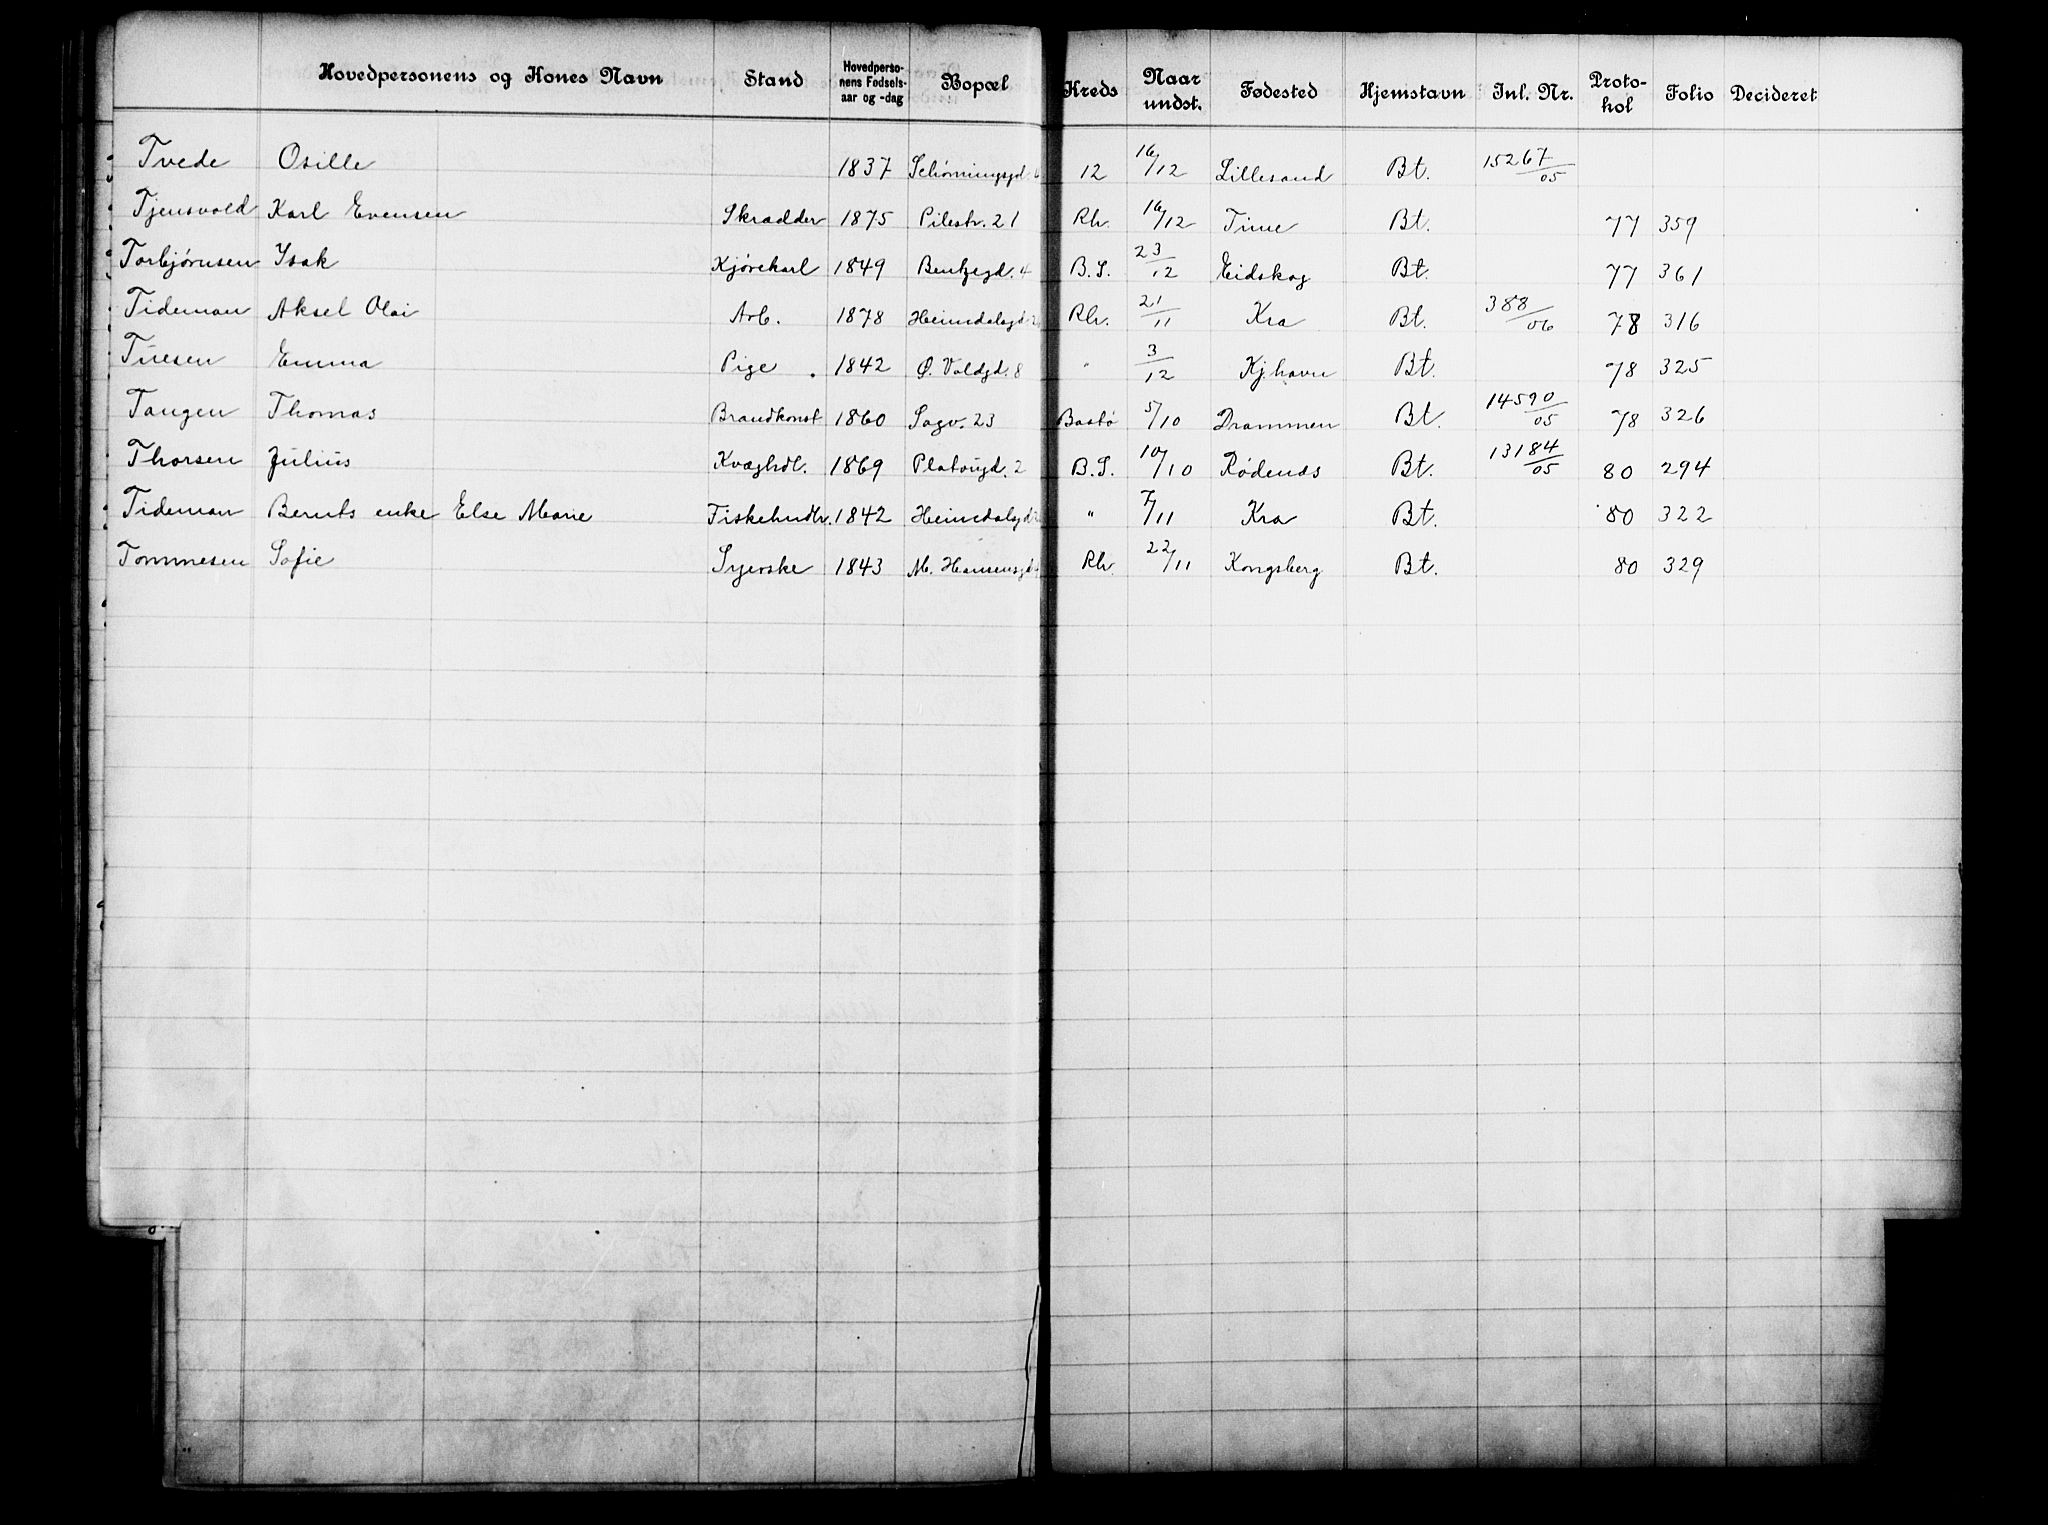 Hovedpersonens og Kones Navn Stand Hovedperso-nens Fødsels-aar og -dag Bopæl Kreds Naar undst. Fødested Hjemstavn Inl. Nr. Proto-kol Folio Decideret
Tvede Osille 1837 Schøningsgd. 12 16/12 Lillesand Bt. 15267/05
Tjensvold Karl Evensen Skrædder 1875 Pilestr. 21 Rh. 16/12 Time Bt. 77 359
Torbjørnsen Isak Kjørekarl 1849 Bentzegd. 4 B.S. 23/12 Eidskog Bt. 77 361
Tideman Aksel Olai Arb. 1878 Heimdalsgd. Rh. 21/11 Kra Bt. 388/06 78 316
Emma Pige 1842 Ø. Voldgd. 8 " 3/12 Kjhavn Bt. 78 325
Tangen Thomas Brandkonst 1860 Sagv. 23 Bastø 5/10 Drammen Bt. 14590/05 78 326
Thorsen Julius Kvæghdl. 1869 Platougd. 2 B.S. 10/10 Rødenæs Bt. 13184/05 80 294
Tideman Bernts enke Else Marie Fiskehndlr. 1842 Heimdalsgd " 7/11 Kra Bt. 80 322
Tommesen Sofie Syerske 1843 M. Hansensgd Rh. 22/11 Kongsberg Bt. 80 329